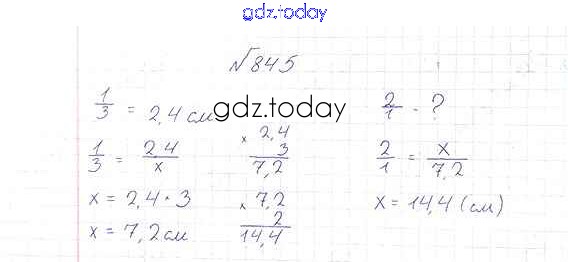 gdz.today
№845
1/3 = 2,4 см
gdz.today
2/1 - ?
1/3 = 2,4/x
× 2,4
3
7,2
2/1 = x/7,2
x = 2,4 · 3
× 7,2
2
14,4
x = 14,4 (см)
x = 7,2 см